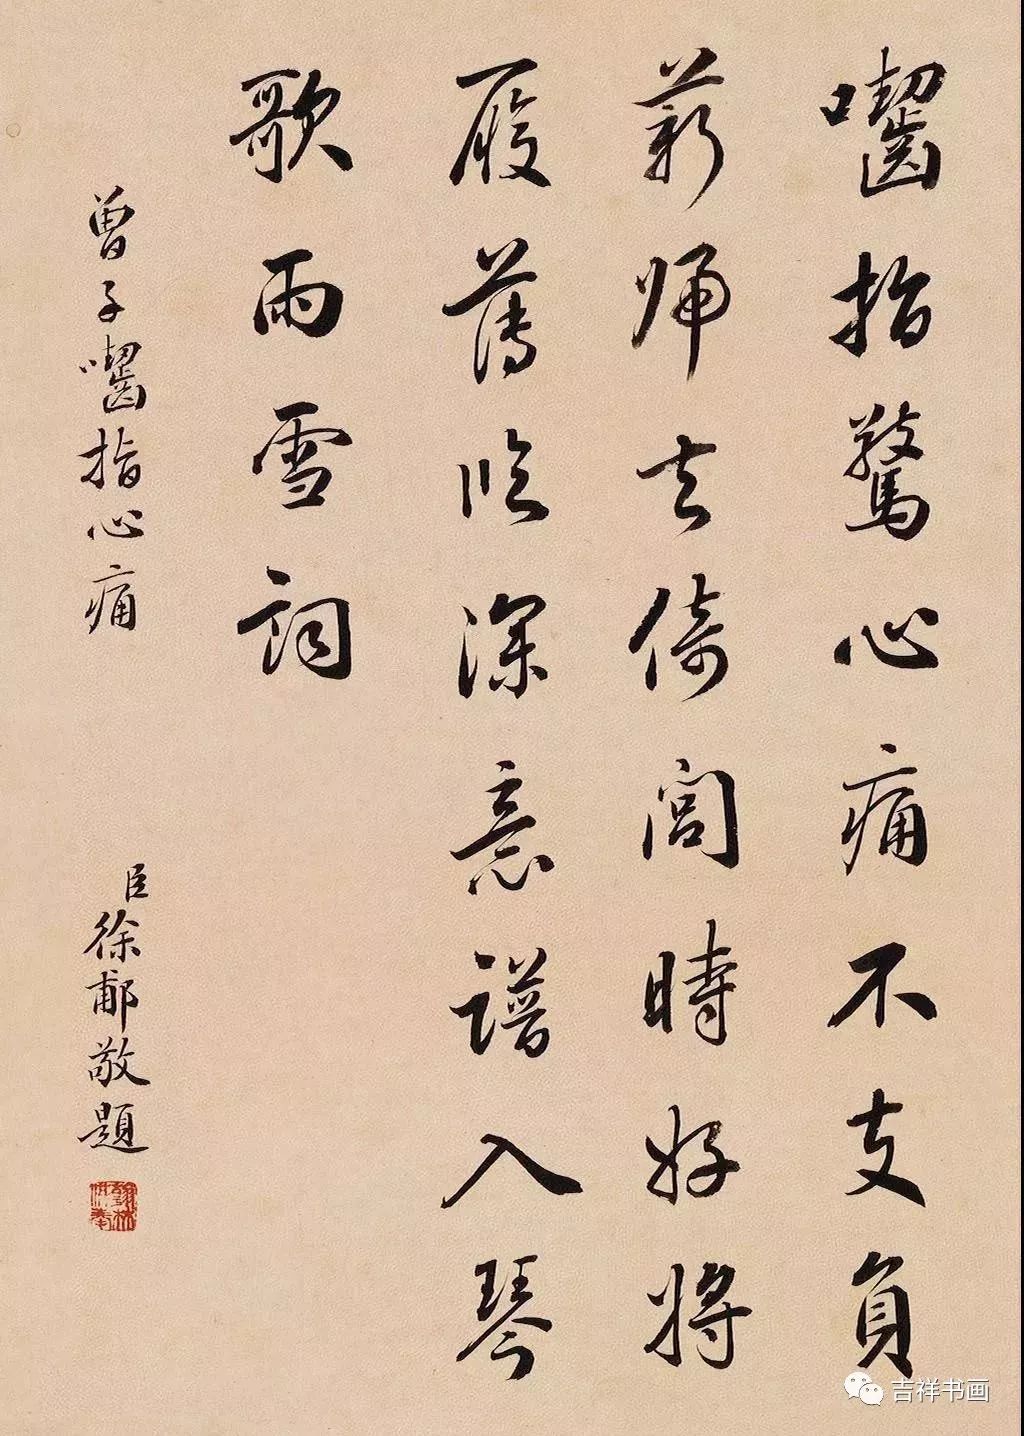 囓指驚心痛不支負
薪歸去倚閭時好將
履薄臨深意譜入琴
歌雨雪詞
曾子囓指心痛
臣徐郙敬題
翰林供奉
吉祥书画